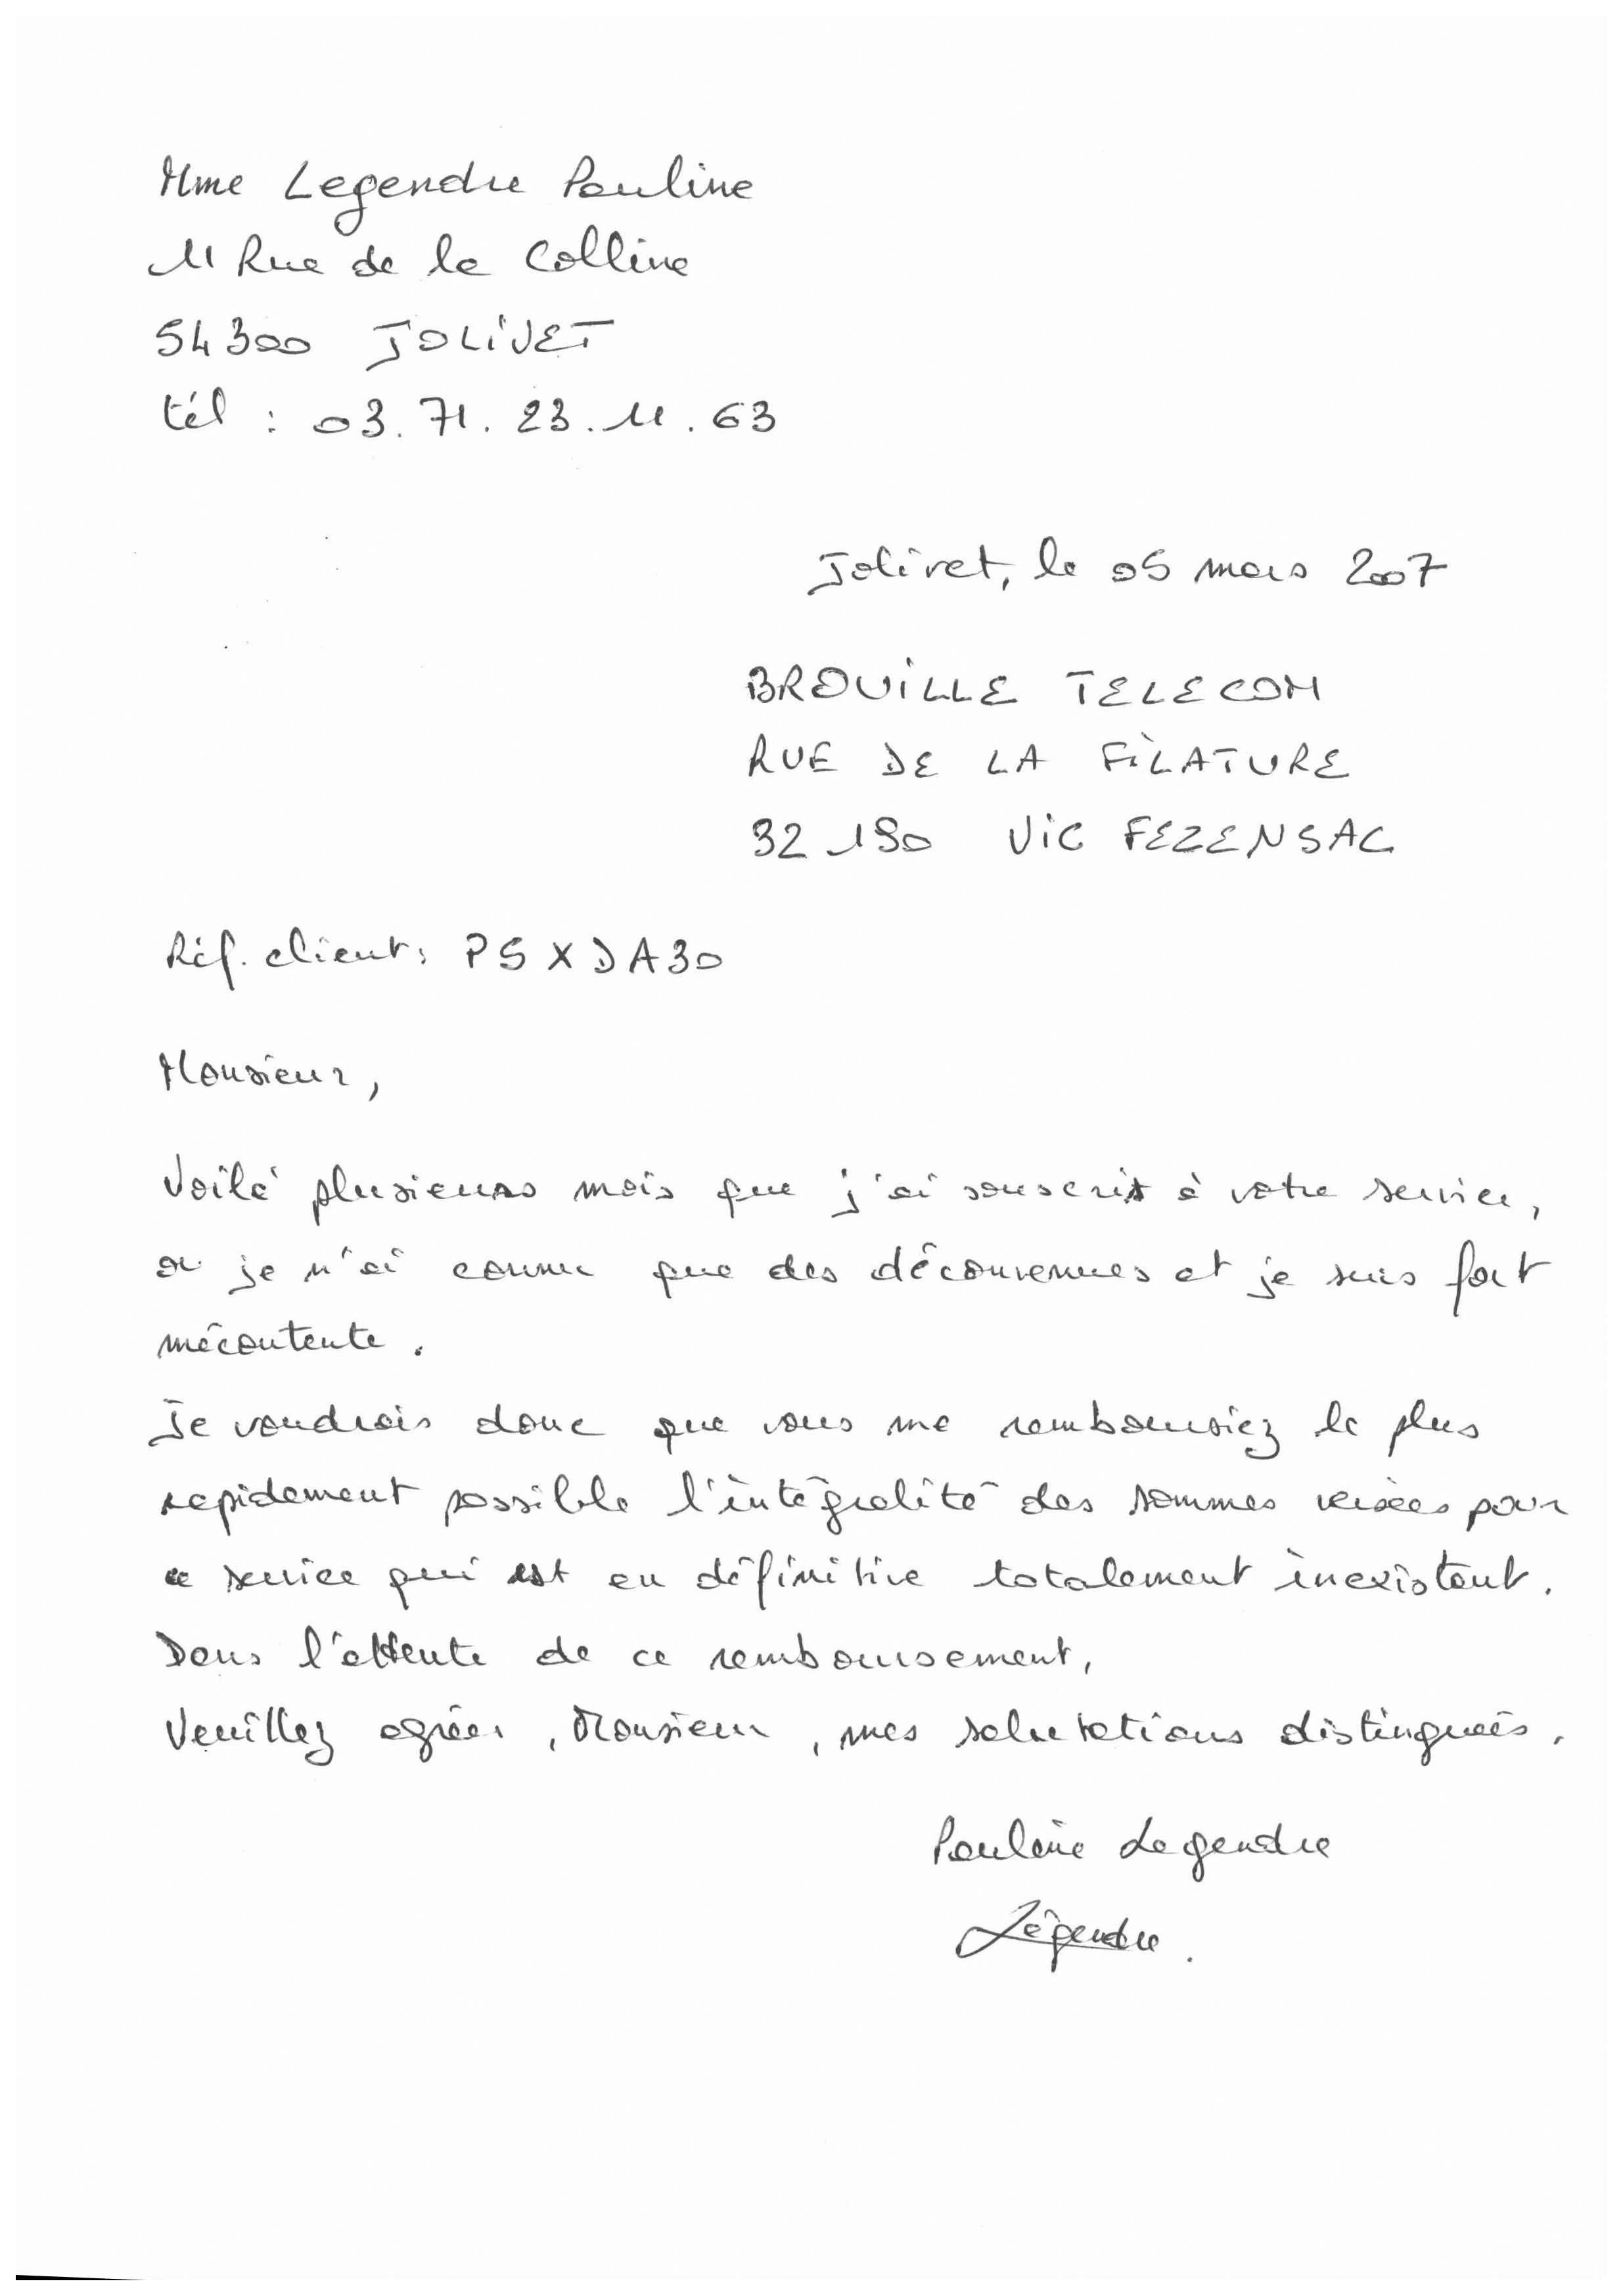 Mme Legendre Pauline
11 Rue de la Colline
54300 JOLIVET
tél : 03.71.23.11.63
Jolivet, le 05 mars 2007
BROUILLE TELECOM
RUE DE LA FILATURE
32190 VIC FEZENSAC
Réf. client : PSXDA30
Monsieur,
Voilà plusieurs mois que j'ai souscrit à votre service,
or je n'ai connu que des déconvenues et je suis fort
mécontente.
Je voudrais donc que vous me remboursiez le plus
rapidement possible l'intégralité des sommes versées pour
ce service qui est en définitive totalement inexistant.
Dans l'attente de ce remboursement,
Veuillez agréer, Monsieur, mes salutations distinguées.
Pauline Legendre
Legendre.